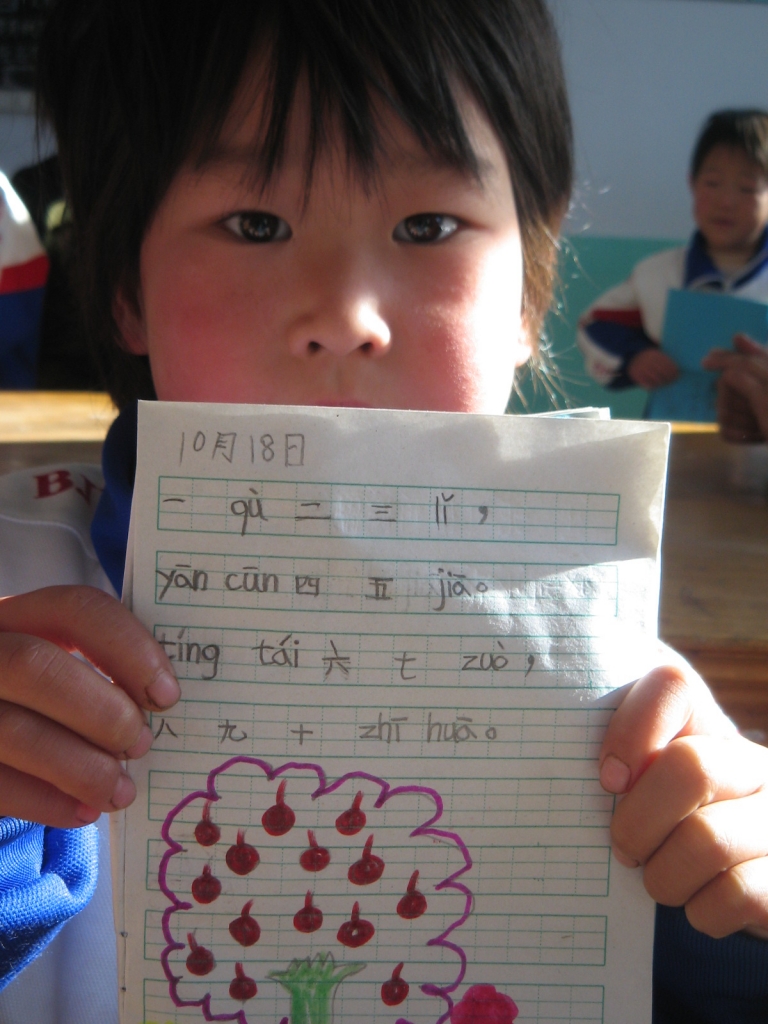 10月18日
一 qù 二 三 lǐ，
yān cūn 四 五 jiā。
tíng tái 六 七 zuò，
八 九 十 zhī huā。